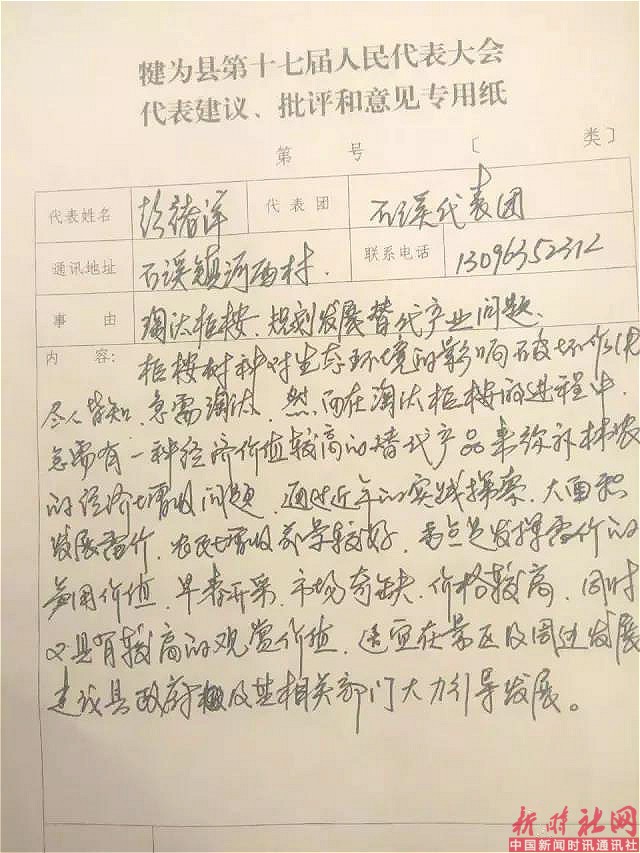 犍为县第十七届人民代表大会
代表建议、批评和意见专用纸
第 号 〔 类〕
代表姓名 彭椿洋 代表团 石溪代表团
通讯地址 石溪镇河西村. 联系电话 13096352312
事由 淘汰柜桉、规划发展替代产业问题、
内容: 柜桉树种对生态环境的影响破坏作用
尽人皆知、急需淘汰、然而在淘汰柜桉的进程中、
急需有一种经济价值较高的替代产品来弥补林农
的经济增收问题、通过近年的实践探索、大面积
发展 农民增收前景较好、重点是发挥 的
食用价值、早春开采、市场奇缺、价格较高、同时
又具有较高的观赏价值、适宜在景区及周边发展
建议县政府及其相关部门大力引导发展。
新时社网
中国新闻时讯通讯社